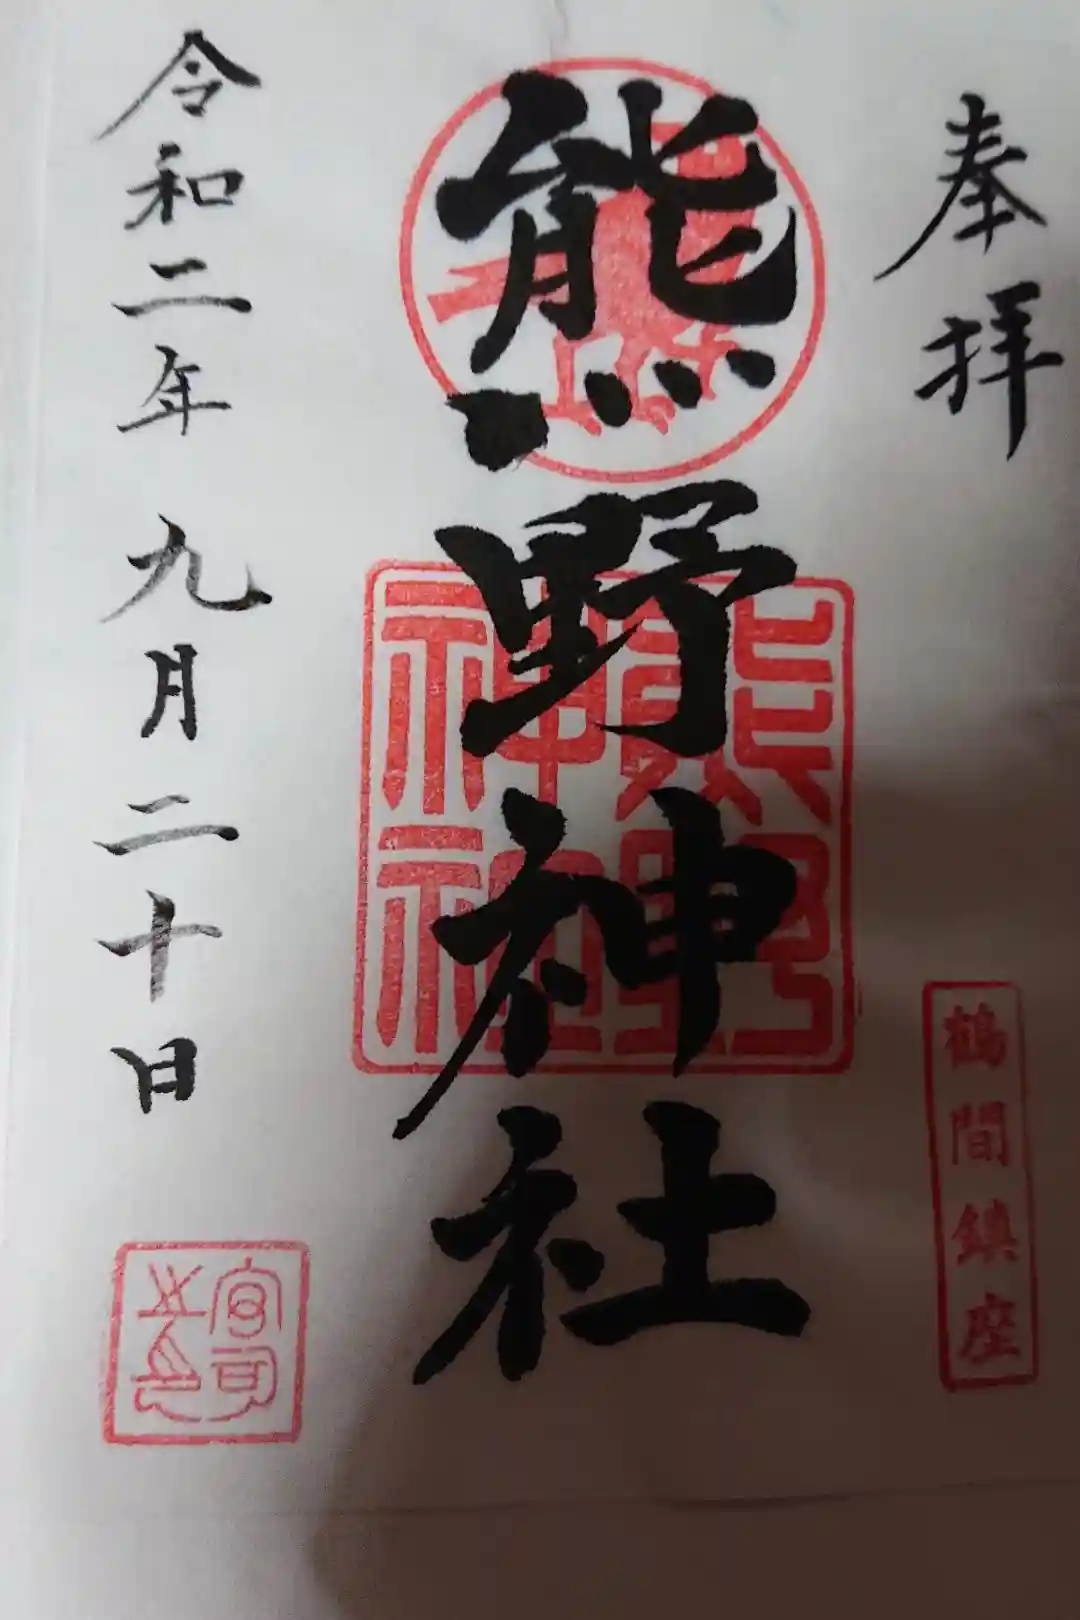 奉拝
鶴間鎮座
熊野神社
熊野
神社
令和二年九月二十日